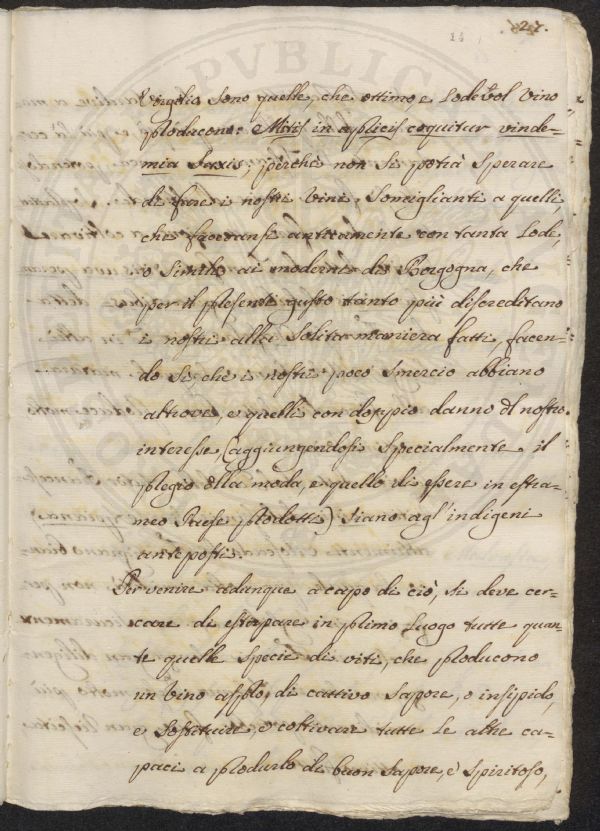 27.
Virgilio sono quelle, che ottimo e lodevol vino
producono: Mitis in apricis coquitur vinde=
mia saxis, perchè non si potrà sperare
di fare i nostri vini somiglianti a quelli,
che faceansi anticamente con tanta lode,
o simili ai moderni di Borgogna, che
per il presente gusto tanto più discreditano
i nostri alla solita maniera fatti, facen=
do sì, che i nostri poco smercio abbiano
altrove, e quelli con doppio danno dl nostro
interesse (aggiungendosi specialmente il
pregio della moda, e quello di essere in estra=
neo Paese prodotti) siano agl'indigeni
anteposti.
Per venire adunque a capo di ciò, si deve cer=
care di estirpare in primo luogo tutte quan=
te quelle specie di viti, che producono
un vino aspro, di cattivo sapore, o insipido,
e sostituire, e coltivare tutte le altre ca=
paci a produrlo di buon sapore, è spiritoso,